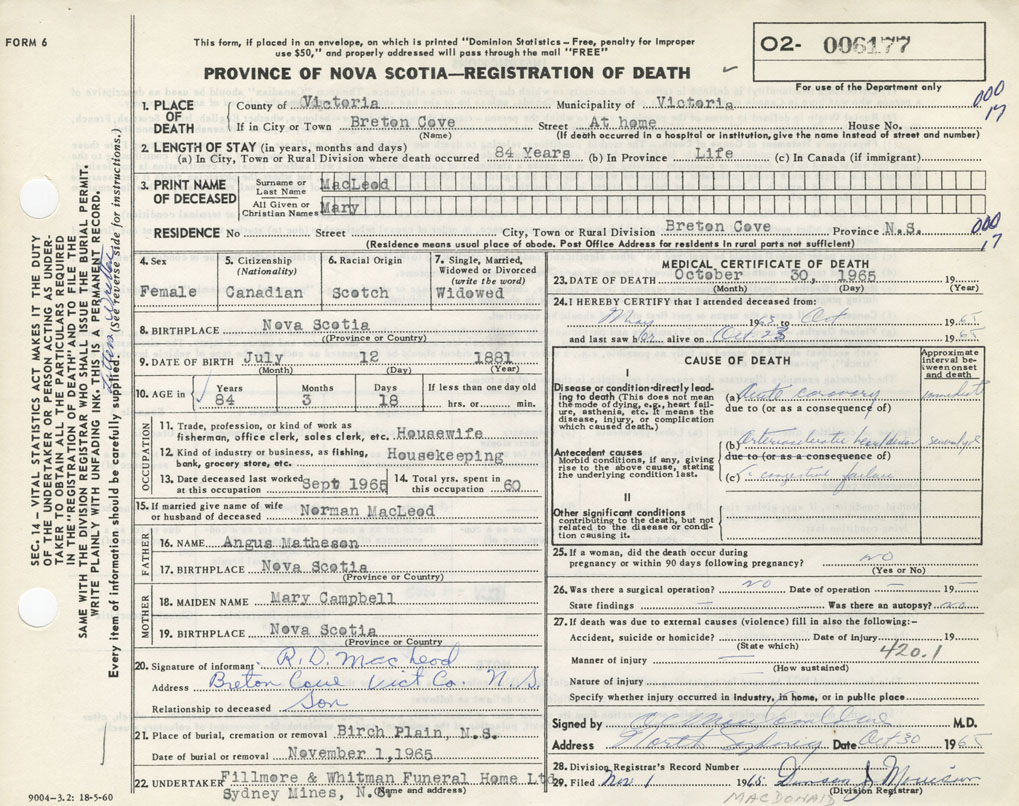 FORM 6
This form, if placed in an envelope, on which is printed "Dominion Statistics – Free, penalty for improper
use $50," and properly addressed will pass through the mail "FREE"
PROVINCE OF NOVA SCOTIA—REGISTRATION OF DEATH
O2- 006177
For use of the Department only
1. PLACE OF DEATH County of Victoria Municipality of Victoria 000
If in City or Town Breton Cove Street At home House No. 17
(Name) (If death occurred in a hospital or institution, give the name instead of street and number)
2. LENGTH OF STAY (in years, months and days)
(a) In City, Town or Rural Division where death occurred 84 Years (b) In Province Life (c) In Canada (if immigrant)
3. PRINT NAME OF DECEASED Surname or Last Name MacLeod
All Given or Christian Names Mary
RESIDENCE No Street City, Town or Rural Division Breton Cove Province N.S. 000
(Residence means usual place of abode. Post Office Address for residents in rural parts not sufficient) 17
4. Sex Female
5. Citizenship (Nationality) Canadian
6. Racial Origin Scotch
7. Single, Married, Widowed or Divorced (write the word) Widowed
8. BIRTHPLACE Nova Scotia
(Province or Country)
9. DATE OF BIRTH July 12 1881
(Month) (Day) (Year)
10. AGE in Years Months Days If less than one day old
84 3 18 hrs. or min.
OCCUPATION
11. Trade, profession, or kind of work as
fisherman, office clerk, sales clerk, etc. Housewife
12. Kind of industry or business, as fishing,
bank, grocery store, etc. Housekeeping
13. Date deceased last worked at this occupation Sept 1965
14. Total yrs. spent in this occupation 60
15. If married give name of wife
or husband of deceased Norman MacLeod
FATHER
16. NAME Angus Matheson
17. BIRTHPLACE Nova Scotia
(Province or Country)
MOTHER
18. MAIDEN NAME Mary Campbell
19. BIRTHPLACE Nova Scotia
(Province or Country
20. Signature of informant R. D. MacLeod
Address Breton Cove Vict Co. N.S.
Relationship to deceased Son
21. Place of burial, cremation or removal Birch Plain, N.S.
Date of burial or removal November 1,1965
22. UNDERTAKER Fillmore & Whitman Funeral Home Ltd
Sydney Mines, N.S. (Name and address)
MEDICAL CERTIFICATE OF DEATH
23. DATE OF DEATH October 30, 1965 19
(Month) (Day) (Year)
24. I HEREBY CERTIFY that I attended deceased from:
May 1965 to Oct 1965
and last saw her alive on Oct 23 1965
CAUSE OF DEATH
Approximate interval between onset and death
I
Disease or condition directly leading to death (This does not mean the mode of dying, e.g., heart failure, asthenia, etc. It means the disease, injury, or complication which caused death.)
(a) Acute coronary immediate
due to (or as a consequence of)
Antecedent causes
Morbid conditions, if any, giving rise to the above cause, stating the underlying condition last.
(b) Arteriosclerotic heart disease several yrs
due to (or as a consequence of)
(c) congestive failure
II
Other significant conditions
contributing to the death, but not related to the disease or condition causing it.
25. If a woman, did the death occur during
pregnancy or within 90 days following pregnancy? no
(Yes or No)
26. Was there a surgical operation? no Date of operation — 19 —
State findings — Was there an autopsy? no
27. If death was due to external causes (violence) fill in also the following:–
Accident, suicide or homicide? Date of injury 19
(State which) 420.1
Manner of injury —
(How sustained)
Nature of injury
Specify whether injury occurred in industry, in home, or in public place
Signed by M.D.
Address North Sydney Date Oct 30 1965
28. Division Registrar's Record Number
29. Filed Nov 1 1965
(Division Registrar)
MACDONALD
SEC. 14 – VITAL STATISTICS ACT MAKES IT THE DUTY
OF THE UNDERTAKER OR PERSON ACTING AS UNDER-
TAKER TO OBTAIN ALL THE PARTICULARS REQUIRED
IN THE "REGISTRATION OF DEATH" AND TO FILE THE
SAME WITH THE DIVISION REGISTRAR WHO SHALL ISSUE THE BURIAL PERMIT.
WRITE PLAINLY WITH UNFADING INK–THIS IS A PERMANENT RECORD.
Every item of information should be carefully supplied. (See reverse side for instructions.)
9004–3.2: 18-5-60